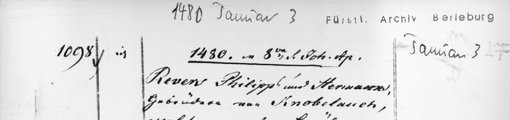 1480 Januar 3
Fürstl. Archiv Berleburg
1098
1480. in 8va S. Joh. Ap. Januar 3
Revers Philipp und Hermann,
Gebrüdern von Knobelauch,